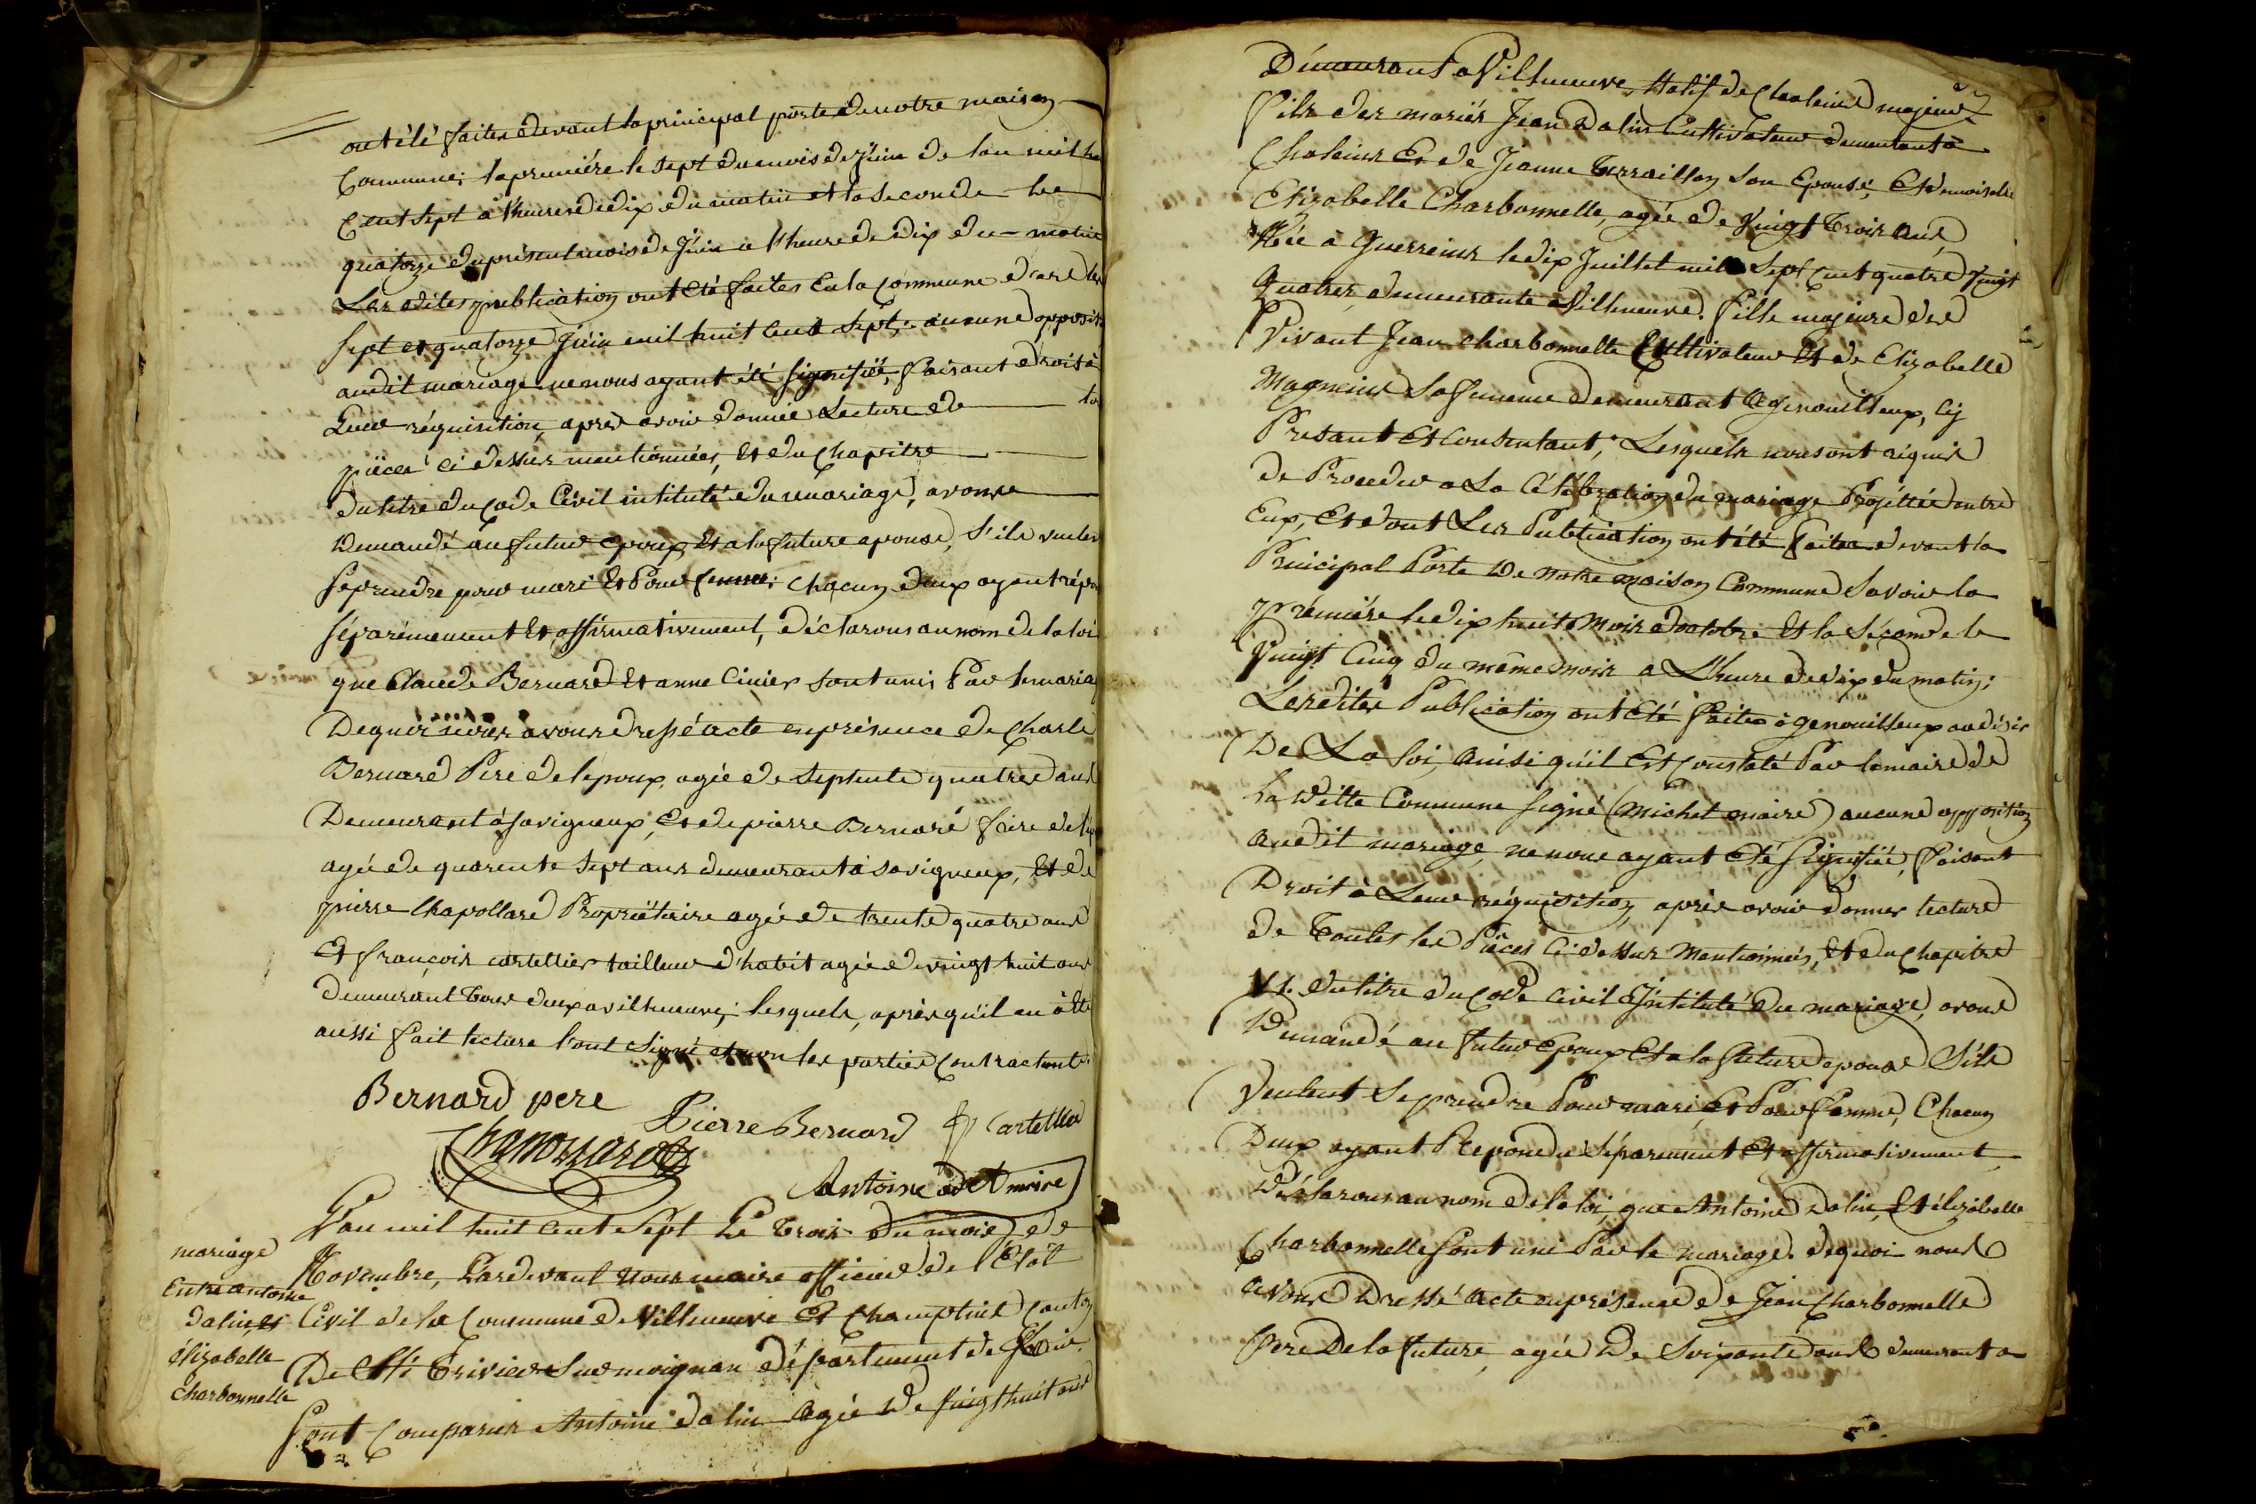 ont été faites devant la principal porte de notre maison
Commune; la premiére le sept du mois de Juin de lan mil
Cent sept a l'heure de dix du matin et la seconde le
quatorze du présent mois de Juin a l'heure de dix du matin
Les dites publication ont été faites en la Commune d'ars les
sept et quatorze Juin mil huit cent sept; aucune
audit mariage ne nous ayant été signifiée, faisant droit à
Leur réquisition, apres avoir donnée Lecture de
piëces ci dessus mentionnées, et du Chapitre
du titre du Code Civil intitulé du mariage, avons
Demandé au futur epoux et a la future epouse, s'ils
se prendre pour mari Et Pour femme; chacun deux ayant
séparemement Et affirmativement, déclarons au nom de la loi
que Claude Bernard Et anne Cinier sont unis Par le
De quoi avons dressé acte en présence de Charle
Bernard Pere de lepoux, agée de septente quatre ans
Demeurant à Savigneux, Et de pierre Bernard frere de
agée de quarente sept ans demeurant à savigneux, Et de
pierre Chapollard Propriëtaire agée de trente quatre ans
Et françois cartellier tailleur d'habit agée de vingt huit ans
demeurant tous deux a villeneuve; lesquels, après qu'il en
aussi fait lecture l'ont signé et non les parties Contractante
Bernard pere
Pierre Bernard
Cartellier
Antoine maire
Lan mil huit cent Sept Le trois du mois de
mariage
Novembre, Pardevant nous maire officier de l'Etat
Entre antoine
dalin, et
Civil de la Commune de Villeneuve Et Champteint Canton
élizabelle
De St Trivier Sur moignan département de
charbonnelle
Sont Comparus Antoine dalin Agée De vingt huit ans
Démeurant a Villeneuve, Natif de Chaleins majeur
Fils des mariés Jean Dalin Cultivateur demeurant a
Chaleins Et de Jeanne Terraillon Son Epouse, Et demoiselle
Elizabelle Charbonnelle, agée de Vingt Trois Ans
Née a Guerreins le dix Juillet mil Sept Cent quatre Vingt
Quatres demeurante a Villeneuve. Fille majeure de
Vivant Jean Charbonnelle Cultivateur Et de Elizabelle
Magneins Sa femme Demeurant a genouilleux, Cy
Presant Et Consentant; Lesquels nous ont réquis
de Proceder a La Célébration du mariage Projettée entre
Eux, Et dont Les Publication ont été Faites devant la
Principal Porte De notre maison Commune Savoir la
prémiére le dix huit Mois doctobre Et la Séconde le
Vingt Cinq du même mois a L'heure de dix du matin;
Les dites Publication ont Eté Faites à genouilleux au désir
De La loi, Ainsi qu'il Est Constaté Par le maire de
La Ditte Commune Signé (michel maire) aucune opposition
Audit mariage, ne nous ayant Eté Signifiée, Faisant
Droit à Leur réquisition, après avoir donner lecture
de Toutes les Pièces Ci dessus Mentionnés, Et du Chapitre
VI. du titre du Code civil Jntitulé Du mariage, avons
Demandé au futur epoux Et a la Future epouse S'ils
Veulent Se prendre Pour mari, Et Pour Femme, Chacun
Deux ayant Repondu Séparement Et affirmativement
Déclarons au nom de la loi, que Antoine Dalin, Et élizabelle
Charbonnelle Sont uni Par le mariage. de quoi nous
Avons Dressé Acte en présence de Jean Charbonnelle
Pere De la Future, agée De Soixante ans demeurant a